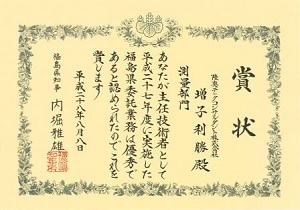 賞状
陸奥テックコンサルタント株式会社
測量部門
増子利勝 殿
あなたが主任技術者として
平成二十七年度に実施した
福島県委託業務は優秀で
あると認められたのでこれを
賞します
平成二十八年八月八日
福島県知事 内堀雅雄